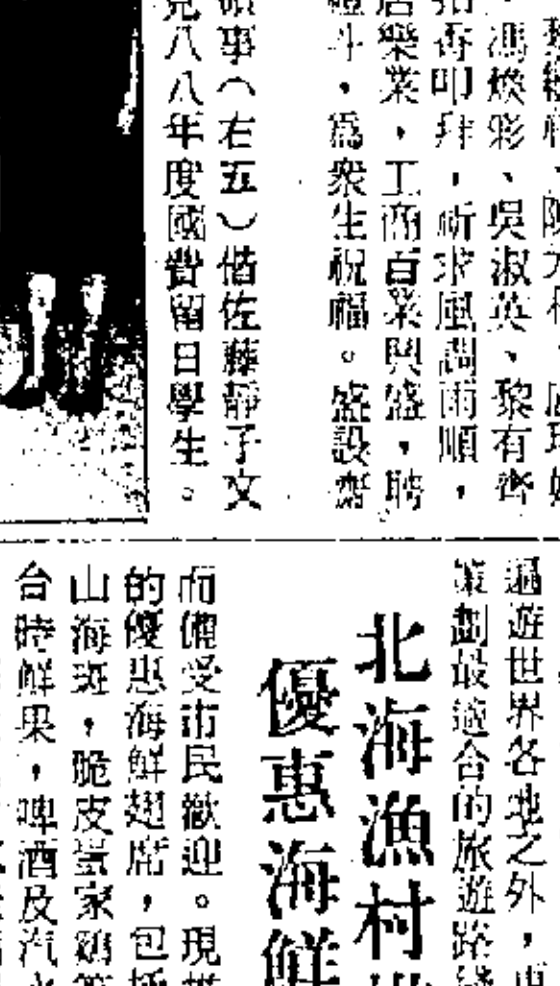 、馮煥彩、吳淑英、黎有齊
拍香叩拜，祈求風調雨順，
居樂業，工商百業興盛，聘
禮斗，為衆生祝福。盛設齋
領事（右五）偕佐藤靜子文
見八八年度國費留日學生。
遍遊世界各地之外，
策劃最適合的旅遊路綫
北海漁村
優惠海鮮
而備受市民歡迎。現
的優惠海鮮翅席，包括
山海斑，脆皮豉家鷄
台時鮮果，啤酒及汽水